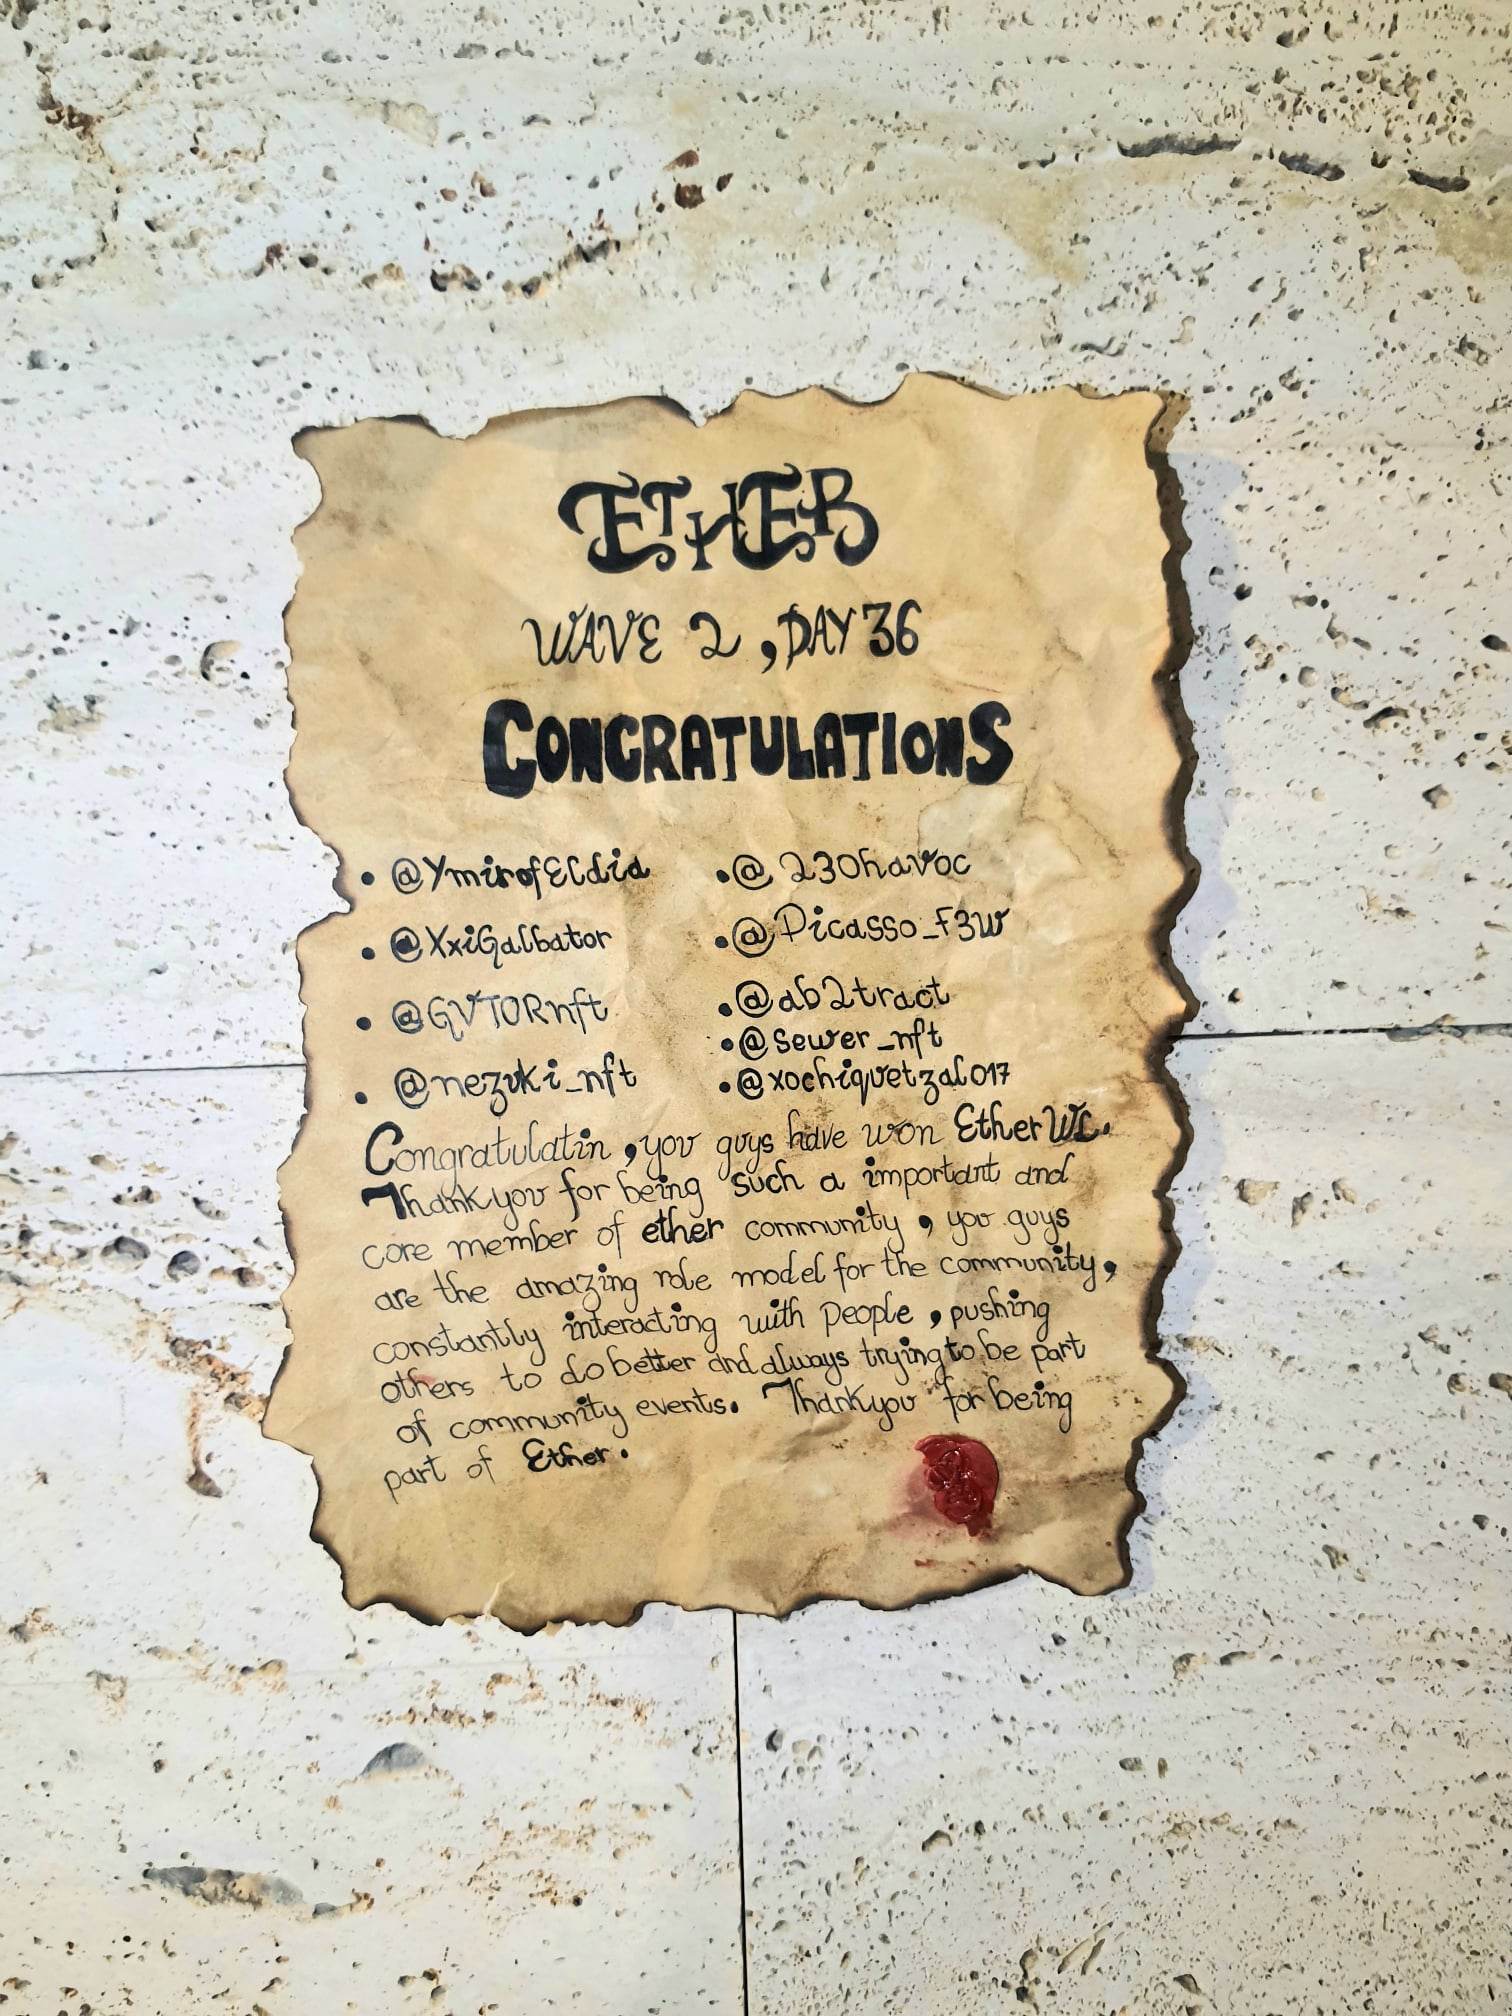 ETHER
WAVE 2, DAY 36
CONGRATULATIONS
• @YmirofEldia
• @XxiGalbator
• @GVTORnft
• @nezuki_nft
• @230havoc
• @Picasso_F3W
• @ab2tract
• @sewer_nft
• @xochiquetzal017
Congratulatin, you guys have won Ether WL.
Thankyou for being such a important and
core member of ether community, you guys
are the amazing role model for the community,
constantly interacting with people, pushing
others to do better and always trying to be part
of community events. Thankyou for being
part of Ether.